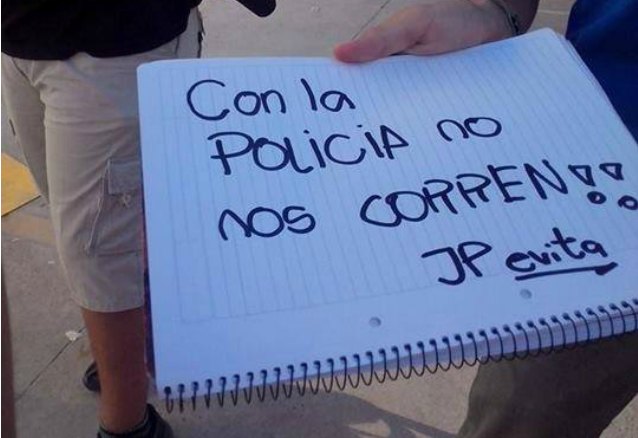 Con la
POLICIA no
nos CORREN!!
JP evita